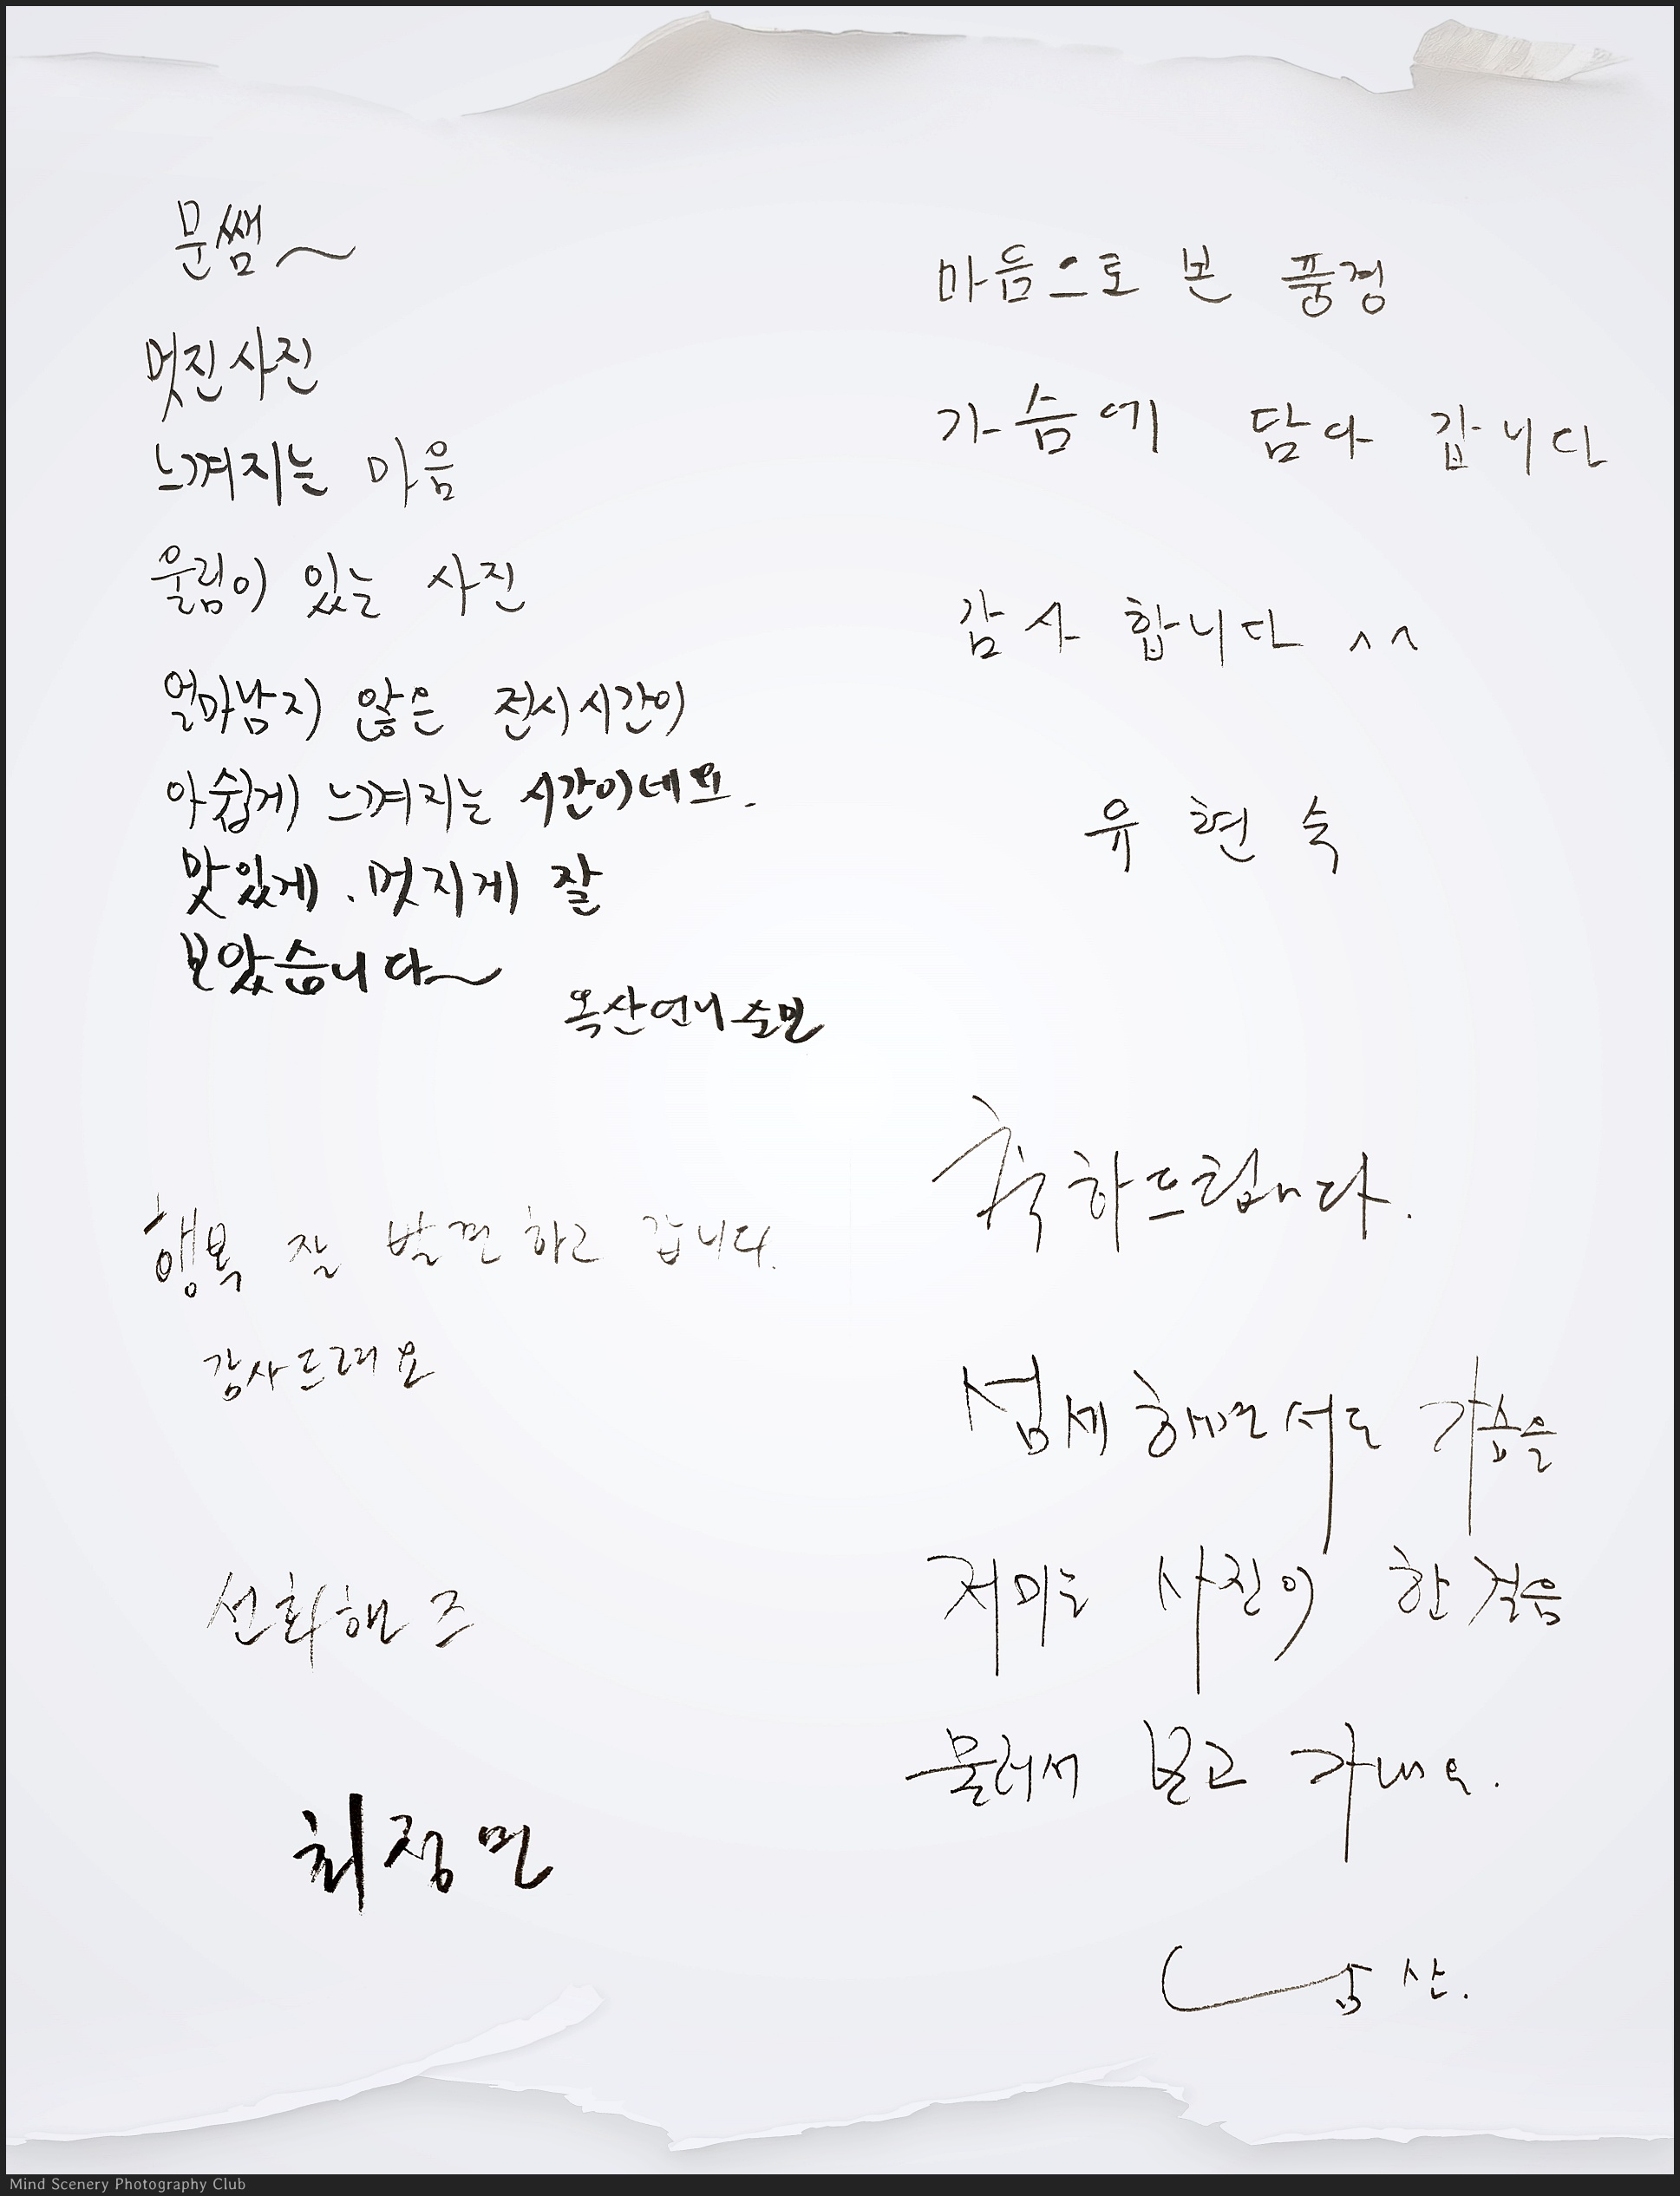 문쌤~
멋진사진
느껴지는 마음
울림이 있는 사진
얼마남지 않은 전시시간이
아쉽게 느껴지는 시간이네요.
맛있게. 멋지게 잘
보았습니다~
옥산언니 순민
행복 잘 발견 하고 갑니다.
감사드려요
선화해즈
최정민
마음으로 본 풍경
가슴에 담아 갑니다
감사 합니다 ^^
유 현 숙
축하드립니다.
섬세하면서도 가슴을
저미는 사진이 한 걸음
물러서 보고 가네요.
남산.
Mind Scenery Photography Club